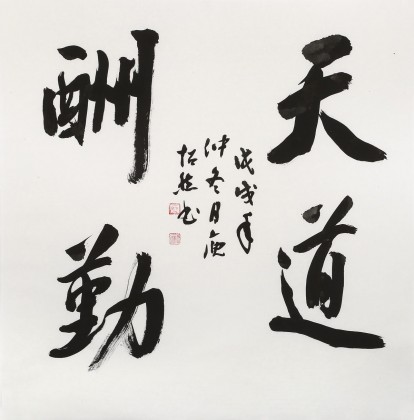 天道
戊戌年
仲冬月
书
酬勤